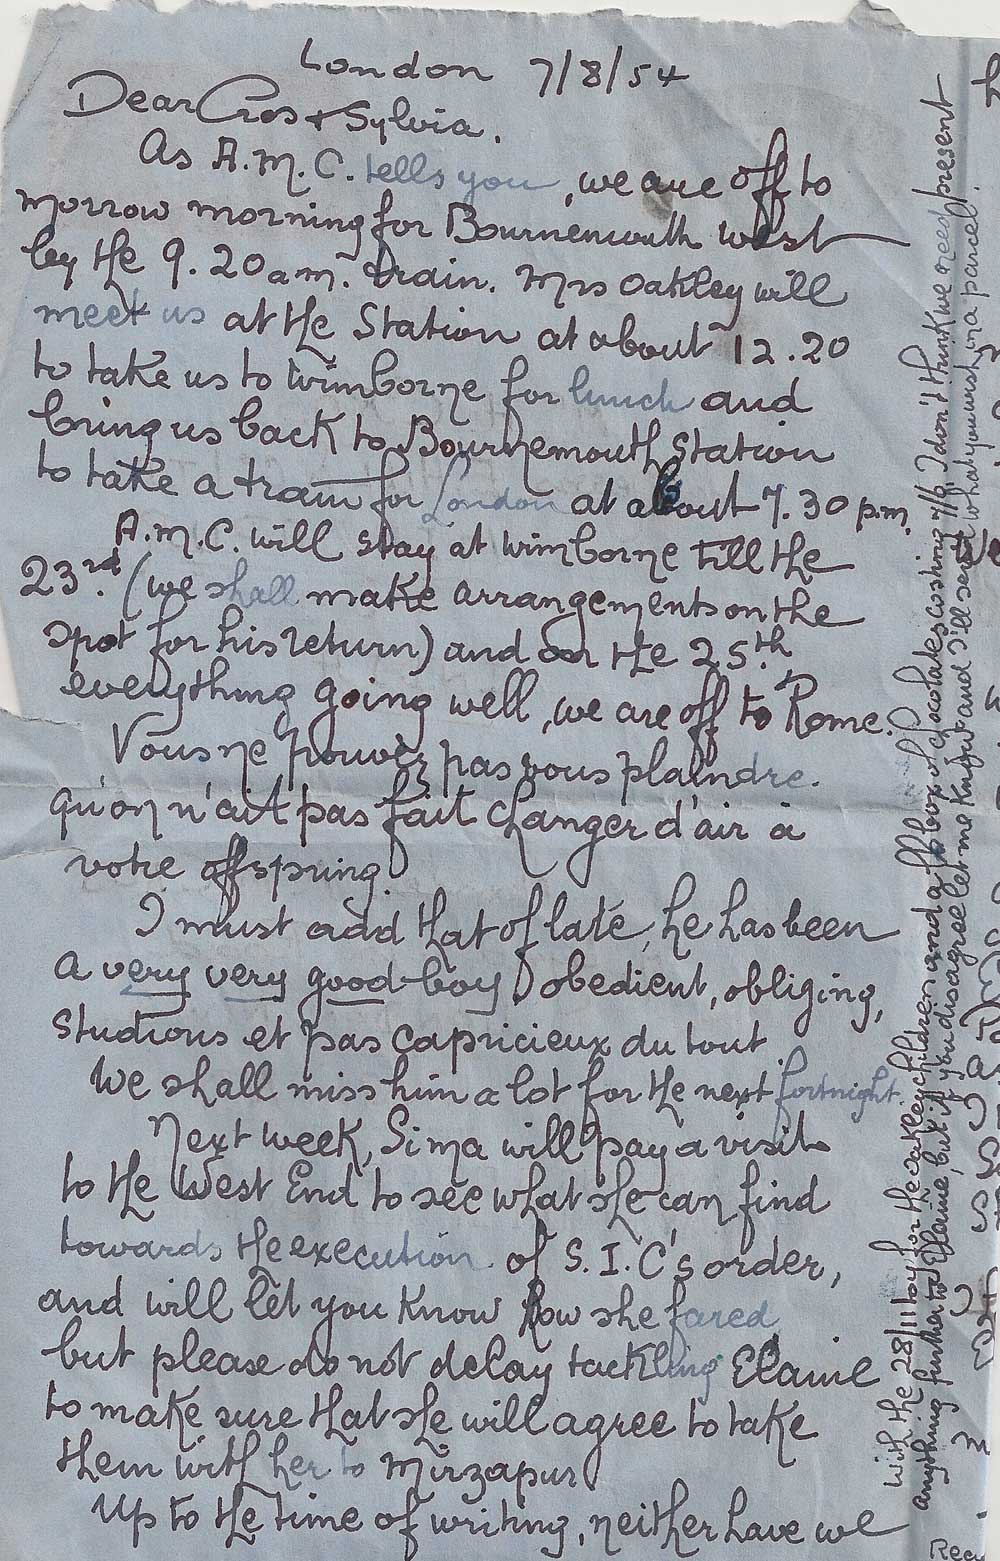 London 7/8/54
Dear Cros & Sylvia.
As A.M.C. tells you, we are off to
morrow morning for Bournemouth West
by the 9.20 a.m. train. Mrs Oakley will
meet us at the Station at about 12.20
to take us to Wimborne for lunch and
bring us back to Bournemouth Station
to take a train for London at about 7.30 p.m.
A.M.C. will stay at Wimborne till the
23rd. (we shall make arrangements on the
spot for his return) and on the 25th
everything going well, we are off to Rome.
Vous ne pouvez pas vous plaindre.
qu'on n'ait pas fait changer d'air à
votre offspring.
I must add that of late, he has been
a very very good boy, obedient, obliging,
studious et pas capricieux du tout.
We shall miss him a lot for the next fortnight.
Next week, Sima will pay a visit
to the West End to see what she can find
towards the execution of S.I.C's order,
and will let you know how she fared
but please do not delay tackling Elaine
to make sure that she will agree to take
them with her to Mirzapur
Up to the time of writing, neither have we
With the 28/11 toy for the Oakley children and a box of chocolates costing 7/6, I don't think we need present
anything further to Elaine, but if you disagree let me know and I'll send what you wish in a parcel.